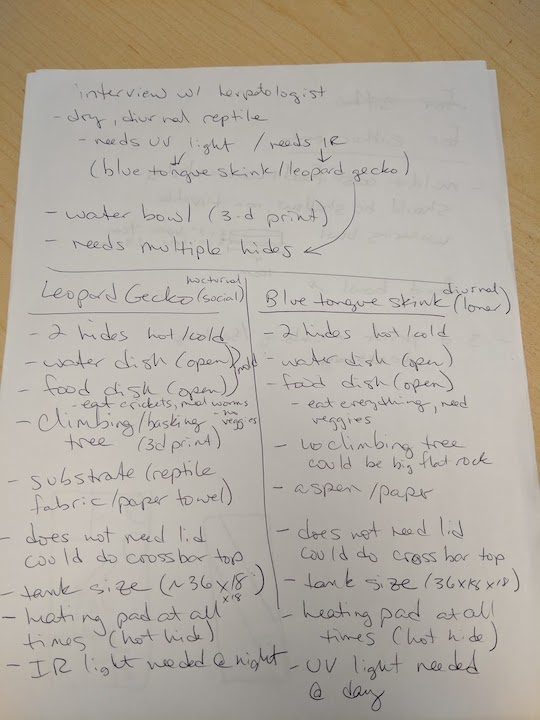 interview w/ herpetologist
- dry, diurnal reptile
- needs UV light / needs IR
(blue tongue skink/leopard gecko)
- water bowl (3-d print)
- needs multiple hides
Leopard Gecko nocturnal (social)
- 2 hides hot/cold
- water dish (open)
- food dish (open) mold
- eat crickets, meal worms
- no veggies
- climbing/basking
tree (3d print)
- substrate (reptile
fabric/paper towel)
- does not need lid
could do crossbar top
- tank size (~36x18")
x18
- heating pad at all
times (hot hide)
- IR light needed @ night
Blue tongue skink diurnal (loner)
- 2 hides hot/cold
- water dish (open)
- food dish (open)
- eat everything, need
veggies
- no climbing tree
could be big flat rock
- aspen/paper
- does not need lid
could do crossbar top
- tank size (36x18x18)
- heating pad at all
times (hot hide)
- UV light needed
@ day